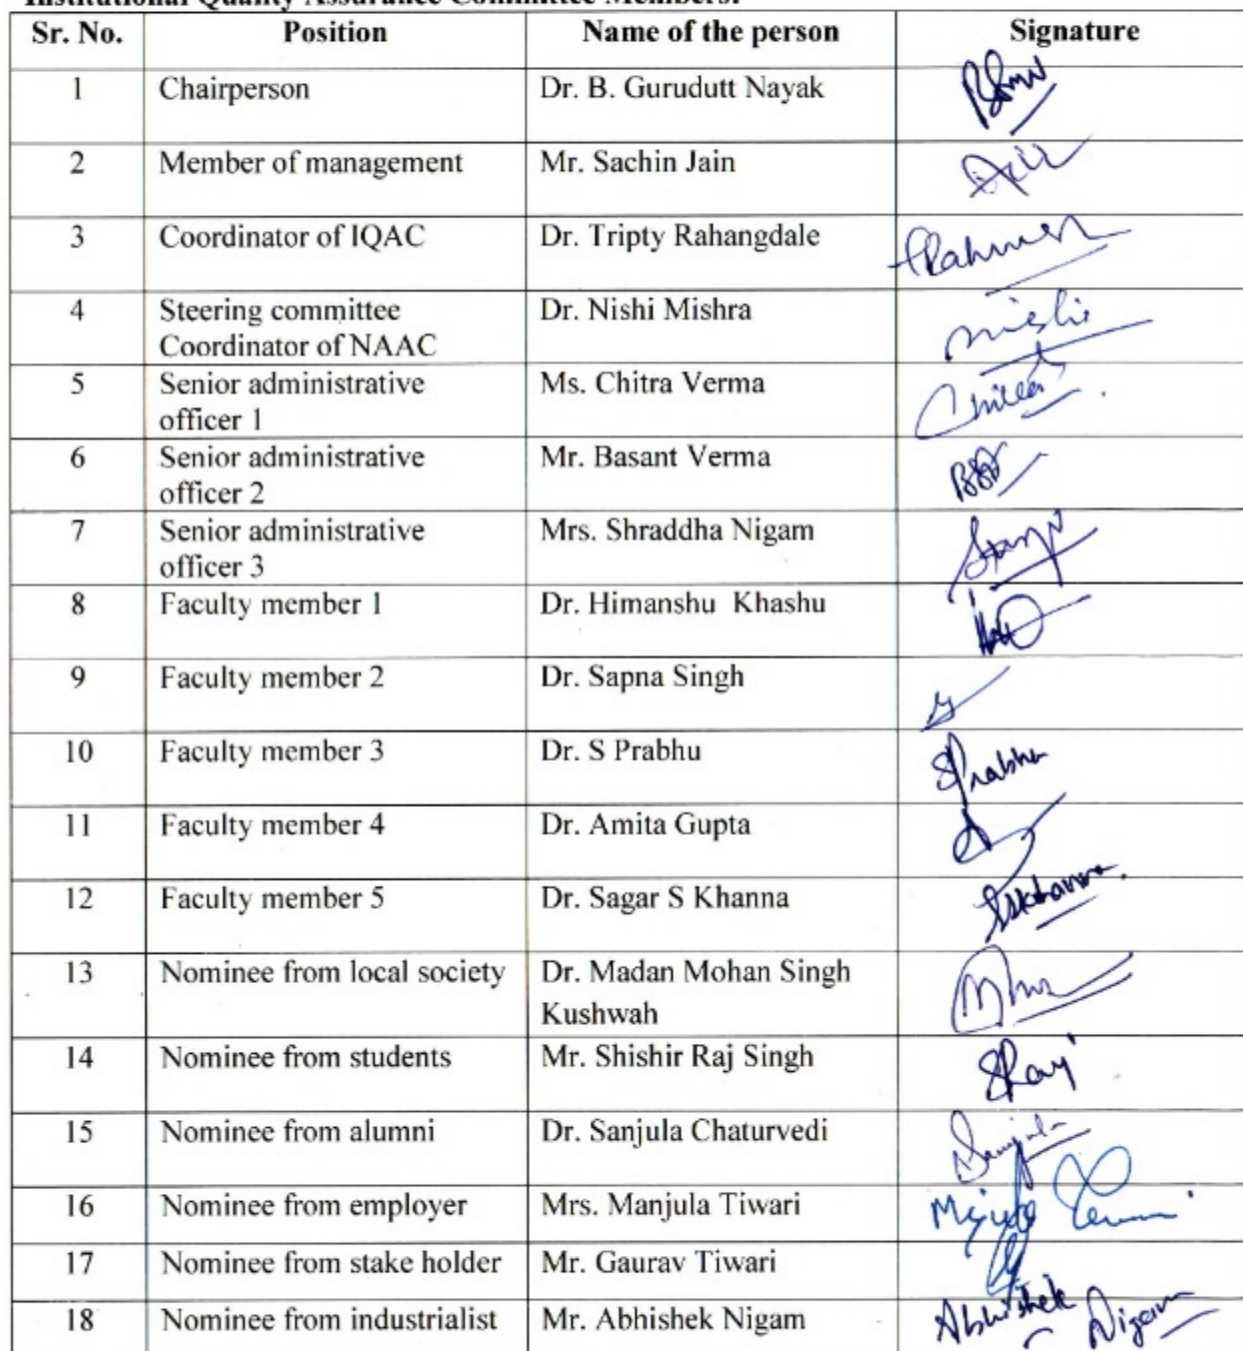 Institutional Quality Assurance Committee Members:
Sr. No. Position Name of the person Signature
1 Chairperson Dr. B. Gurudutt Nayak
2 Member of management Mr. Sachin Jain
3 Coordinator of IQAC Dr. Tripty Rahangdale
4 Steering committee Dr. Nishi Mishra
Coordinator of NAAC
5 Senior administrative Ms. Chitra Verma
officer 1
6 Senior administrative Mr. Basant Verma
officer 2
7 Senior administrative Mrs. Shraddha Nigam
officer 3
8 Faculty member 1 Dr. Himanshu Khashu
9 Faculty member 2 Dr. Sapna Singh
10 Faculty member 3 Dr. S Prabhu SPrabhu
11 Faculty member 4 Dr. Amita Gupta
12 Faculty member 5 Dr. Sagar S Khanna SSKhanna.
13 Nominee from local society Dr. Madan Mohan Singh
Kushwah
14 Nominee from students Mr. Shishir Raj Singh SRaj
15 Nominee from alumni Dr. Sanjula Chaturvedi Sanjula
16 Nominee from employer Mrs. Manjula Tiwari
17 Nominee from stake holder Mr. Gaurav Tiwari
18 Nominee from industrialist Mr. Abhishek Nigam Abhishek Nigam